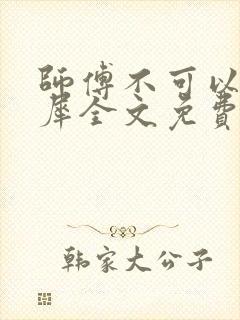 師傅不可以
犀全文免費
韩家大公子